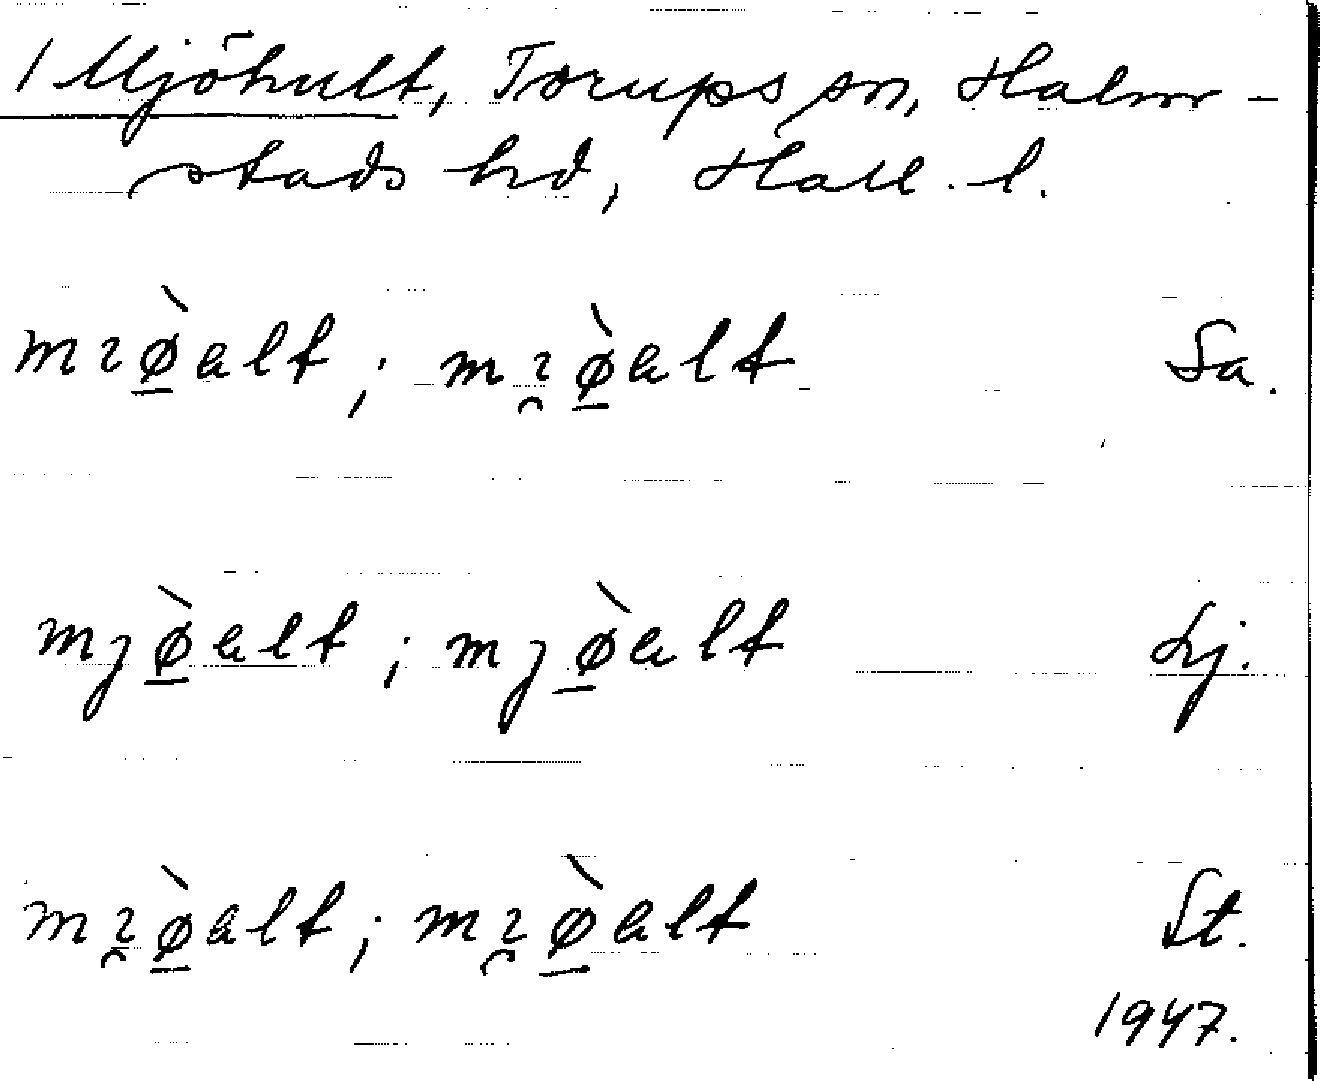 / Mjöhult, Torups sn, Halm-
stads hd, Hall. l.
mɩø̠̀alt ; mɩ̯ø̠̀alt Sa.
mjø̠̀alt ; mjø̠̀alt Lj.
mɩ̯ø̠̀alt ; mɩ̯ø̠̀alt St.
1947.